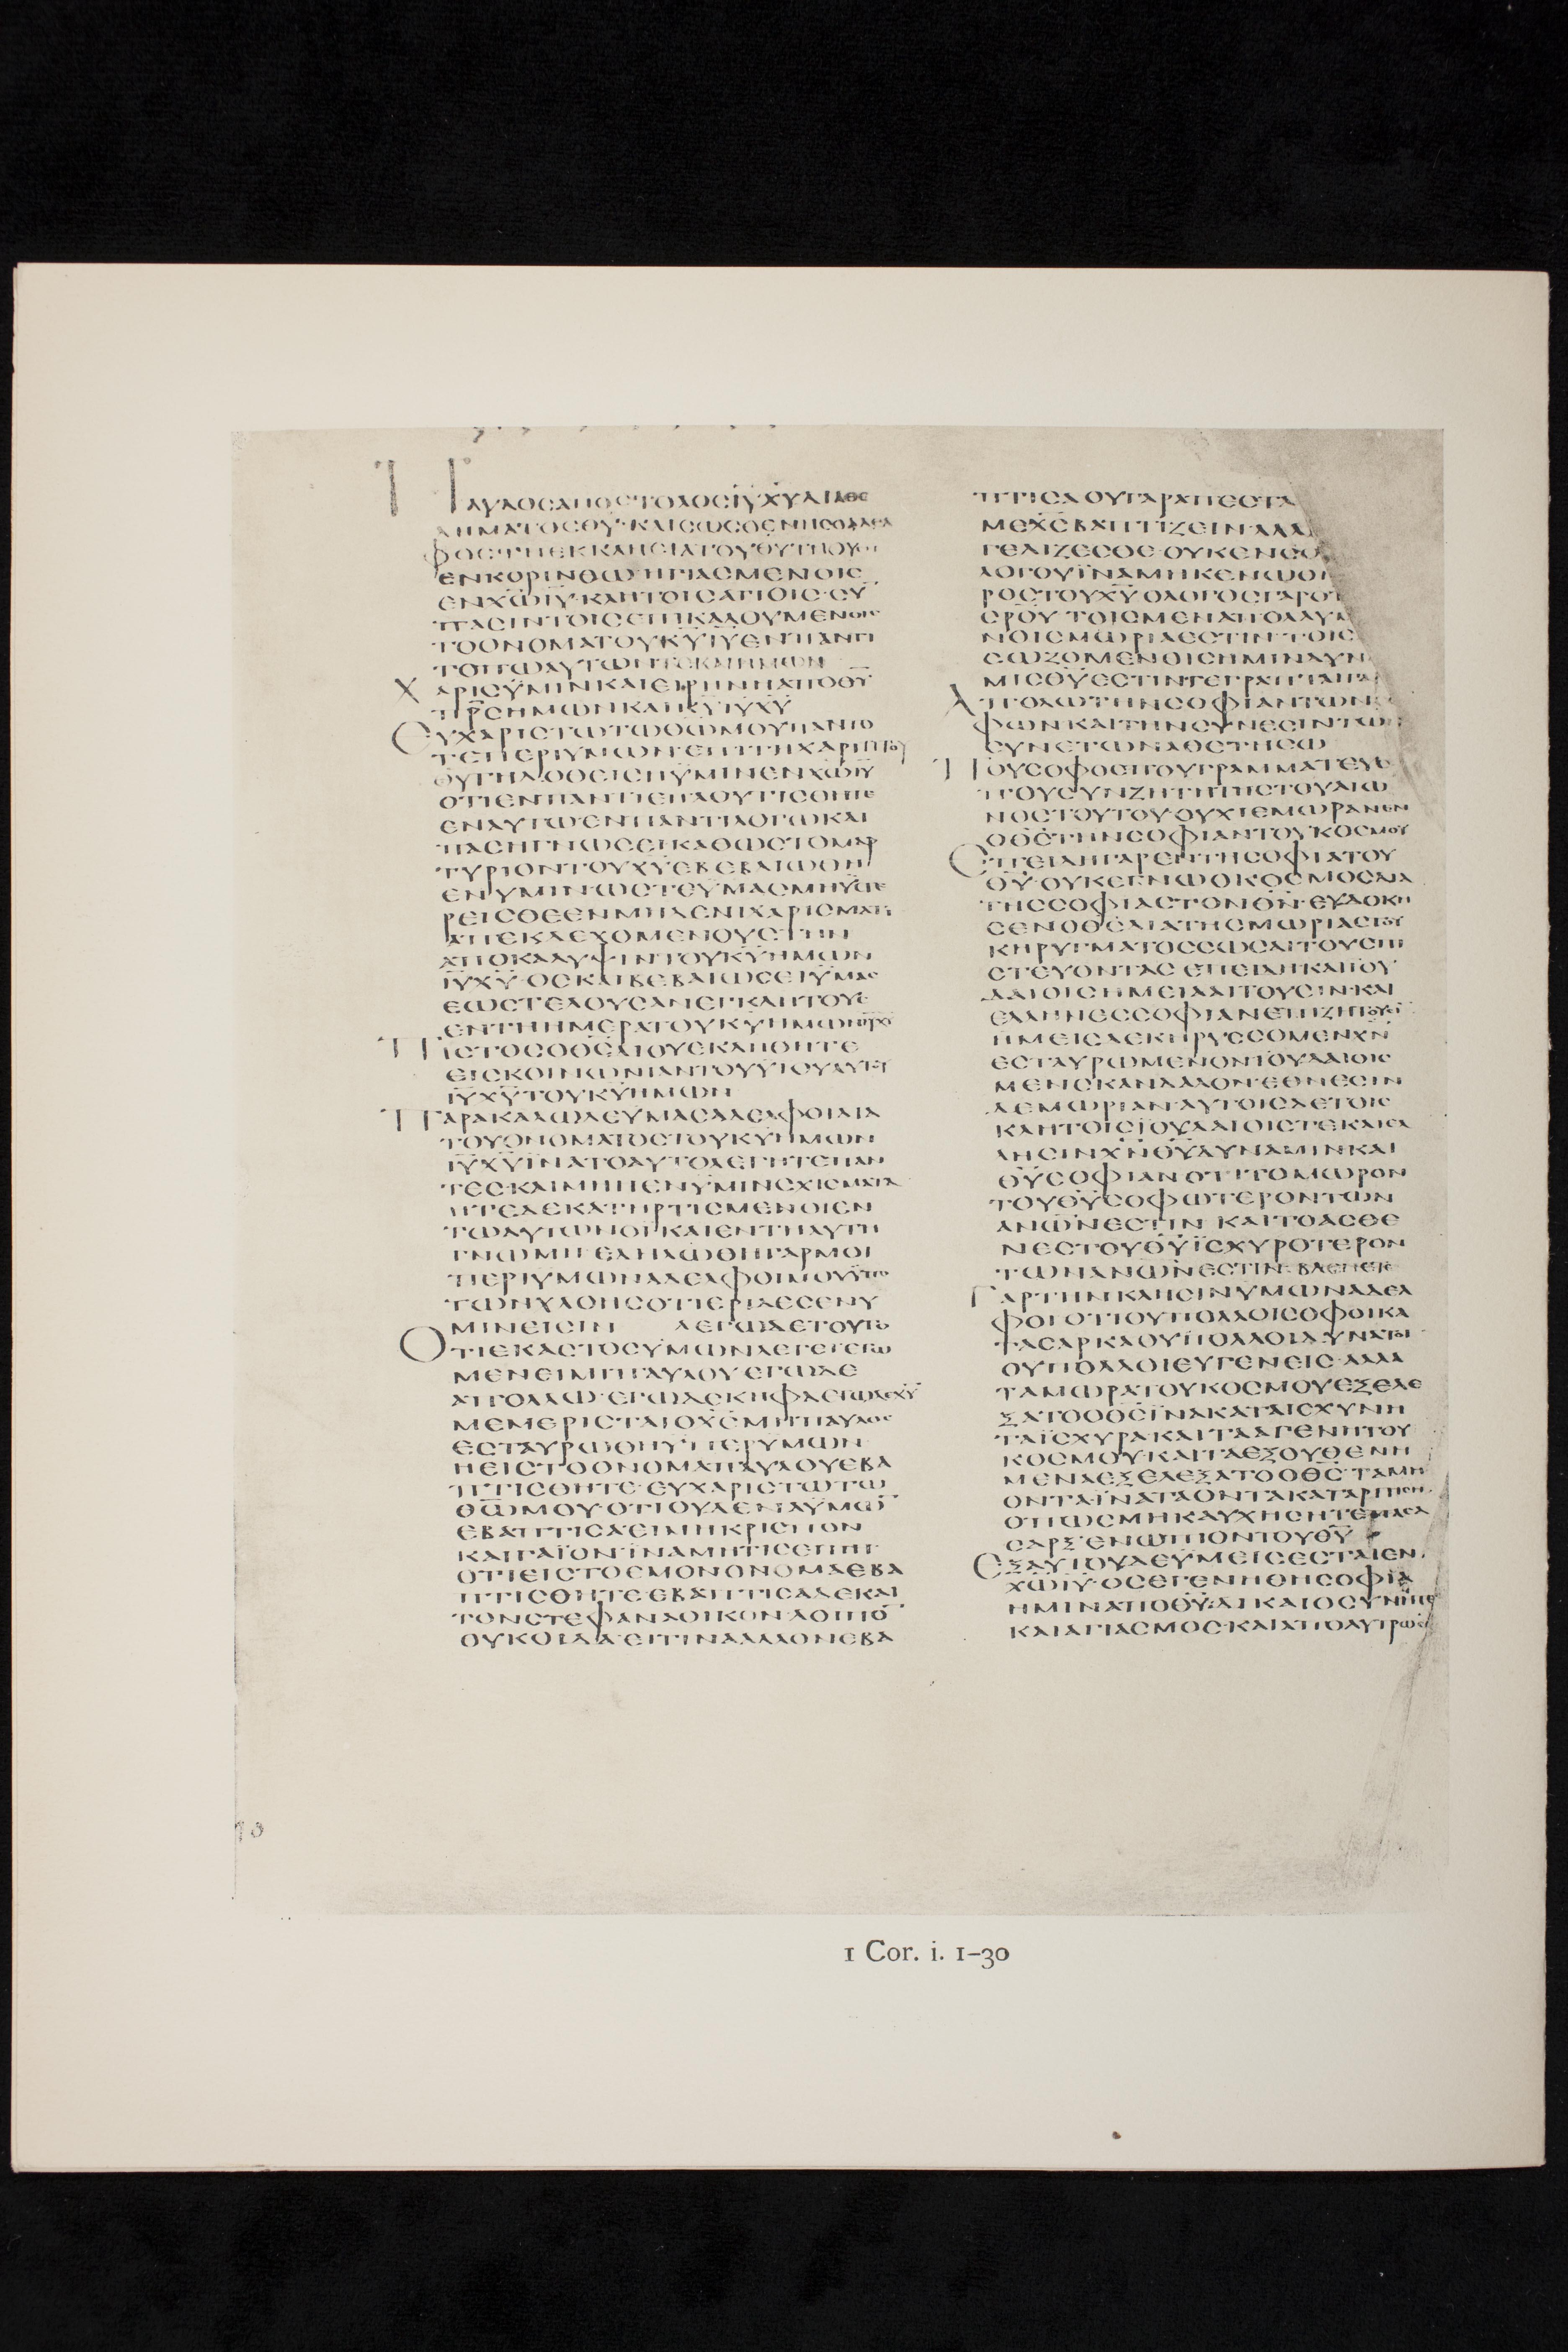 ΠΑΥΛΟϹΑΠΟϹΤΟΛΟϹΙ̅Υ̅Χ̅Υ̅ΔΙΑΘΕ
ΛΗΜΑΤΟϹΘ̅Υ̅·ΚΑΙϹΩϹΘΕΝΗϹΟΑΔΕΛ
ΦΟϹΤΗΕΚΚΛΗϹΙΑΤΟΥΘ̅Υ̅ΤΗΟΥϹΗ
ΕΝΚΟΡΙΝΘΩΗΓΙΑϹΜΕΝΟΙϹ
ΕΝΧ̅Ω̅Ι̅Υ̅·ΚΛΗΤΟΙϹΑΓΙΟΙϹ·ϹΥ̅
ΠΑϹΙΝΤΟΙϹΕΠΙΚΑΛΟΥΜΕΝΟΙϹ
ΤΟΟΝΟΜΑΤΟΥΚ̅Υ̅Ι̅Υ̅ΕΝΠΑΝΤΙ
ΤΟΠΩΑΥΤΩΝΤΕΚΑΙΗΜΩΝ
ΧΑΡΙϹΫΜΙΝΚΑΙΕΙΡΗΝΗΑΠΟΘ̅Υ̅
Π̅Ρ̅Ϲ̅ΗΜΩΝΚΑΙΚ̅Υ̅Ι̅Υ̅Χ̅Υ̅
ΕΥΧΑΡΙϹΤΩΤΩΘ̅Ω̅ΜΟΥΠΑΝΤΟ
ΤΕΠΕΡΙΥΜΩΝ·ΕΠΙΤΗΧΑΡΙΤΙΤΟΥ
Θ̅Υ̅ΤΗΔΟΘΕΙϹΗΫΜΙΝΕΝΧ̅Ω̅Ι̅Υ̅
ΟΤΙΕΝΠΑΝΤΙΕΠΛΟΥΤΙϹΘΗΤΕ
ΕΝΑΥΤΩ·ΕΝΠΑΝΤΙΛΟΓΩΚΑΙ
ΠΑϹΗΓΝΩϹΕΙ·ΚΑΘΩϹΤΟΜΑΡ
ΤΥΡΙΟΝΤΟΥΧ̅Υ̅ΕΒΕΒΑΙΩΘΗ
ΕΝΥΜΙΝΩϹΤΕΫΜΑϹΜΗΫϹΤΕ
ΡΕΙϹΘΕΕΝΜΗΔΕΝΙΧΑΡΙϹΜΑΤΙ
ΑΠΕΚΔΕΧΟΜΕΝΟΥϹΤΗΝ
ΑΠΟΚΑΛΥΨΙΝΤΟΥΚ̅Υ̅ΗΜΩΝ
Ι̅Υ̅Χ̅Υ̅·ΟϹΚΑΙΒΕΒΑΙΩϹΕΙΫΜΑϹ
ΕΩϹΤΕΛΟΥϹΑΝΕΓΚΛΗΤΟΥϹ
ΕΝΤΗΗΜΕΡΑΤΟΥΚ̅Υ̅ΗΜΩΝΙ̅Υ̅Χ̅Υ̅
ΠΙϹΤΟϹΟΘ̅Ϲ̅ΔΙΟΥΕΚΛΗΘΗΤΕ
ΕΙϹΚΟΙΝΩΝΙΑΝΤΟΥΥ̅Ι̅Ο̅Υ̅ΑΥΤΟΥ
Ι̅Υ̅Χ̅Υ̅ΤΟΥΚ̅Υ̅ΗΜΩΝ
ΠΑΡΑΚΑΛΩΔΕΥΜΑϹΑΔΕΛΦΟΙΔΙΑ
ΤΟΥΟΝΟΜΑΤΟϹΤΟΥΚ̅Υ̅ΗΜΩΝ
Ι̅Υ̅Χ̅Υ̅ΪΝΑΤΟΑΥΤΟΛΕΓΗΤΕΠΑΝ
ΤΕϹ·ΚΑΙΜΗΗΕΝΥΜΙΝϹΧΙϹΜΑΤΑ
ΗΤΕΔΕΚΑΤΗΡΤΙϹΜΕΝΟΙΕΝ
ΤΩΑΥΤΩΝΟΪΚΑΙΕΝΤΗΑΥΤΗ
ΓΝΩΜΗ·ΕΔΗΛΩΘΗΓΑΡΜΟΙ
ΠΕΡΙΥΜΩΝΑΔΕΛΦΟΙΜΟΥΫΠΟ
ΤΩΝΧΛΟΗϹΟΤΙΕΡΙΔΕϹΕΝΥ
ΜΙΝΕΙϹΙΝ ΛΕΓΩΔΕΤΟΥΤΟ
ΟΤΙΕΚΑϹΤΟϹΥΜΩΝΛΕΓΕΙΕΓΩ
ΜΕΝΕΙΜΙΠΑΥΛΟΥΕΓΩΔΕ
ΑΠΟΛΛΩ·ΕΓΩΔΕΚΗΦΑΕΓΩΔΕΧ̅Υ̅
ΜΕΜΕΡΙϹΤΑΙΟΧ̅Ϲ̅ΜΗΠΑΥΛΟϹ
ΕϹΤΑΥΡΩΘΗΫΠΕΡΥΜΩΝ
ΗΕΙϹΤΟΟΝΟΜΑΠΑΥΛΟΥΕΒΑ
ΠΤΙϹΘΗΤΕ·ΕΥΧΑΡΙϹΤΩΤΩ
Θ̅Ω̅ΜΟΥ·ΟΤΙΟΥΔΕΝΑΫΜΩ̅
ΕΒΑΠΤΙϹΑΕΙΜΗΚΡΙϹΠΟΝ
ΚΑΙΓΑΪΟΝ·ΪΝΑΜΗΤΙϹΕΙΠΗ
ΟΤΙΕΙϹΤΟΕΜΟΝΟΝΟΜΑΕΒΑ
ΠΤΙϹΘΗΤΕΕΒΑΠΤΙϹΑΔΕΚΑΙ
ΤΟΝϹΤΕΦΑΝΑΟΙΚΟΝΛΟΙΠΟ̅
ΟΥΚΟΙΔΑΕΙΤΙΝΑΑΛΛΟΝΕΒΑ
ΠΤΙϹΑΟΥΓΑΡΑΠΕϹΤΑ
ΜΕΧ̅Ϲ̅ΒΑΠΤΙΖΕΙΝ·ΑΛΛ
ΓΕΛΙΖΕϹΘΕ·ΟΥΚΕΝϹΟ
ΛΟΓΟΥΪΝΑΜΗΚΕΝΩΘ
ΡΟϹΤΟΥΧ̅Υ̅ΟΛΟΓΟϹΓΑΡΟΤ
ϹΡ̅Ο̅Υ̅ΤΟΙϹΜΕΝΑΠΟΛΛΥΜ
ΝΟΙϹΜΩΡΙΑΕϹΤΙΝ·ΤΟΙϹ
ϹΩΖΟΜΕΝΟΙϹΗΜΙΝΔΥΝ
ΜΙϹΘ̅Υ̅ΕϹΤΙΝΓΕΓΡΑΠΤΑΙΓΑ
ΑΠΟΛΩΤΗΝϹΟΦΙΑΝΤΩΝ
ΦΩΝΚΑΙΤΗΝϹΥΝΕϹΙΝΤΩ
ϹΥΝΕΤΩΝΑΘΕΤΗϹΩ
ΠΟΥϹΟΦΟϹΠΟΥΓΡΑΜΜΑΤΕΥϹ
ΠΟΥϹΥΝΖΗΤΗΤΗϹΤΟΥΑΙΩ
ΝΟϹΤΟΥΤΟΥ·ΟΥΧΙΕΜΩΡΑΝΕΝ
ΟΘ̅Ϲ̅ΤΗΝϹΟΦΙΑΝΤΟΥΚΟϹΜΟΥ
ΕΠΕΙΔΗΓΑΡΕΝΤΗϹΟΦΙΑΤΟΥ
Θ̅Υ̅·ΟΥΚΕΓΝΩΟΚΟϹΜΟϹΔΙΑ
ΤΗϹϹΟΦΙΑϹΤΟΝΘ̅Ν̅·ΕΥΔΟΚΗ
ϹΕΝΟΘ̅Ϲ̅ΔΙΑΤΗϹΜΩΡΙΑϹΤΟΥ
ΚΗΡΥΓΜΑΤΟϹϹΩϹΑΙΤΟΥϹΠΙ
ϹΤΕΥΟΝΤΑϹ·ΕΠΕΙΔΗΚΑΙΙΟΥ
ΔΑΙΟΙϹΗΜΕΙΑΑΙΤΟΥϹΙΝ·ΚΑΙ
ΕΛΛΗΝΕϹϹΟΦΙΑΝΕΠΙΖΗΤΟΥϹΙ̅
ΗΜΕΙϹΔΕΚΗΡΥϹϹΟΜΕΝΧ̅Ν̅
ΕϹΤΑΥΡΩΜΕΝΟΝΪΟΥΔΑΙΟΙϹ
ΜΕΝϹΚΑΝΔΑΛΟΝ·ΕΘΝΕϹΙΝ
ΔΕΜΩΡΙΑΝ·ΑΥΤΟΙϹΔΕΤΟΙϹ
ΚΛΗΤΟΙϹΪΟΥΔΑΙΟΙϹΤΕΚΑΙΕΛ
ΛΗϹΙΝΧ̅Ν̅Θ̅Υ̅ΔΥΝΑΜΙΝΚΑΙ
Θ̅Υ̅ϹΟΦΙΑΝΟΤΙΤΟΜΩΡΟΝ
ΤΟΥΘ̅Υ̅ϹΟΦΩΤΕΡΟΝΤΩΝ
Α̅Ν̅Ω̅Ν̅ΕϹΤΙΝ ΚΑΙΤΟΑϹΘΕ
ΝΕϹΤΟΥΘ̅Υ̅ΪϹΧΥΡΟΤΕΡΟΝ
ΤΩΝΑ̅Ν̅Ω̅Ν̅ΕϹΤΙΝ·ΒΛΕΠΕΤΕ
ΓΑΡΤΗΝΚΛΗϹΙΝΥΜΩΝΑΔΕΛ
ΦΟΙΟΤΙΟΥΠΟΛΛΟΙϹΟΦΟΙΚΑ
ΤΑϹΑΡΚΑΟΥΠΟΛΛΟΙΔΥΝΑΤΟΙ
ΟΥΠΟΛΛΟΙΕΥΓΕΝΕΙϹ·ΑΛΛΑ
ΤΑΜΩΡΑΤΟΥΚΟϹΜΟΥΕΞΕΛΕ
ΞΑΤΟΟΘ̅Ϲ̅ΪΝΑΚΑΤΑΙϹΧΥΝΗ
ΤΑΪϹΧΥΡΑΚΑΙΤΑΑΓΕΝΗΤΟΥ
ΚΟϹΜΟΥ·ΚΑΙΤΑΕΞΟΥΘΕΝΗ
ΜΕΝΑΕΞΕΛΕΞΑΤΟΟΘ̅Ϲ̅·ΤΑΜΗ
ΟΝΤΑ·ΪΝΑΤΑΟΝΤΑΚΑΤΑΡΓΗϹΗ
ΟΠΩϹΜΗΚΑΥΧΗϹΗΤΕΠΑϹΑ
ϹΑΡΞ·ΕΝΩΠΙΟΝΤΟΥΘ̅Υ̅
ΕΞΑΥΤΟΥΔΕΫΜΕΙϹΕϹΤΑΙΕΝ
Χ̅Ω̅Ι̅Υ̅·ΟϹΕΓΕΝΗΘΗϹΟΦΙΑ
ΗΜΙΝΑΠΟΘ̅Υ̅·ΔΙΚΑΙΟϹΥΝΗΤΕ
ΚΑΙΑΓΙΑϹΜΟϹ·ΚΑΙΑΠΟΛΥΤΡΩϹ
1 Cor. i. 1–30